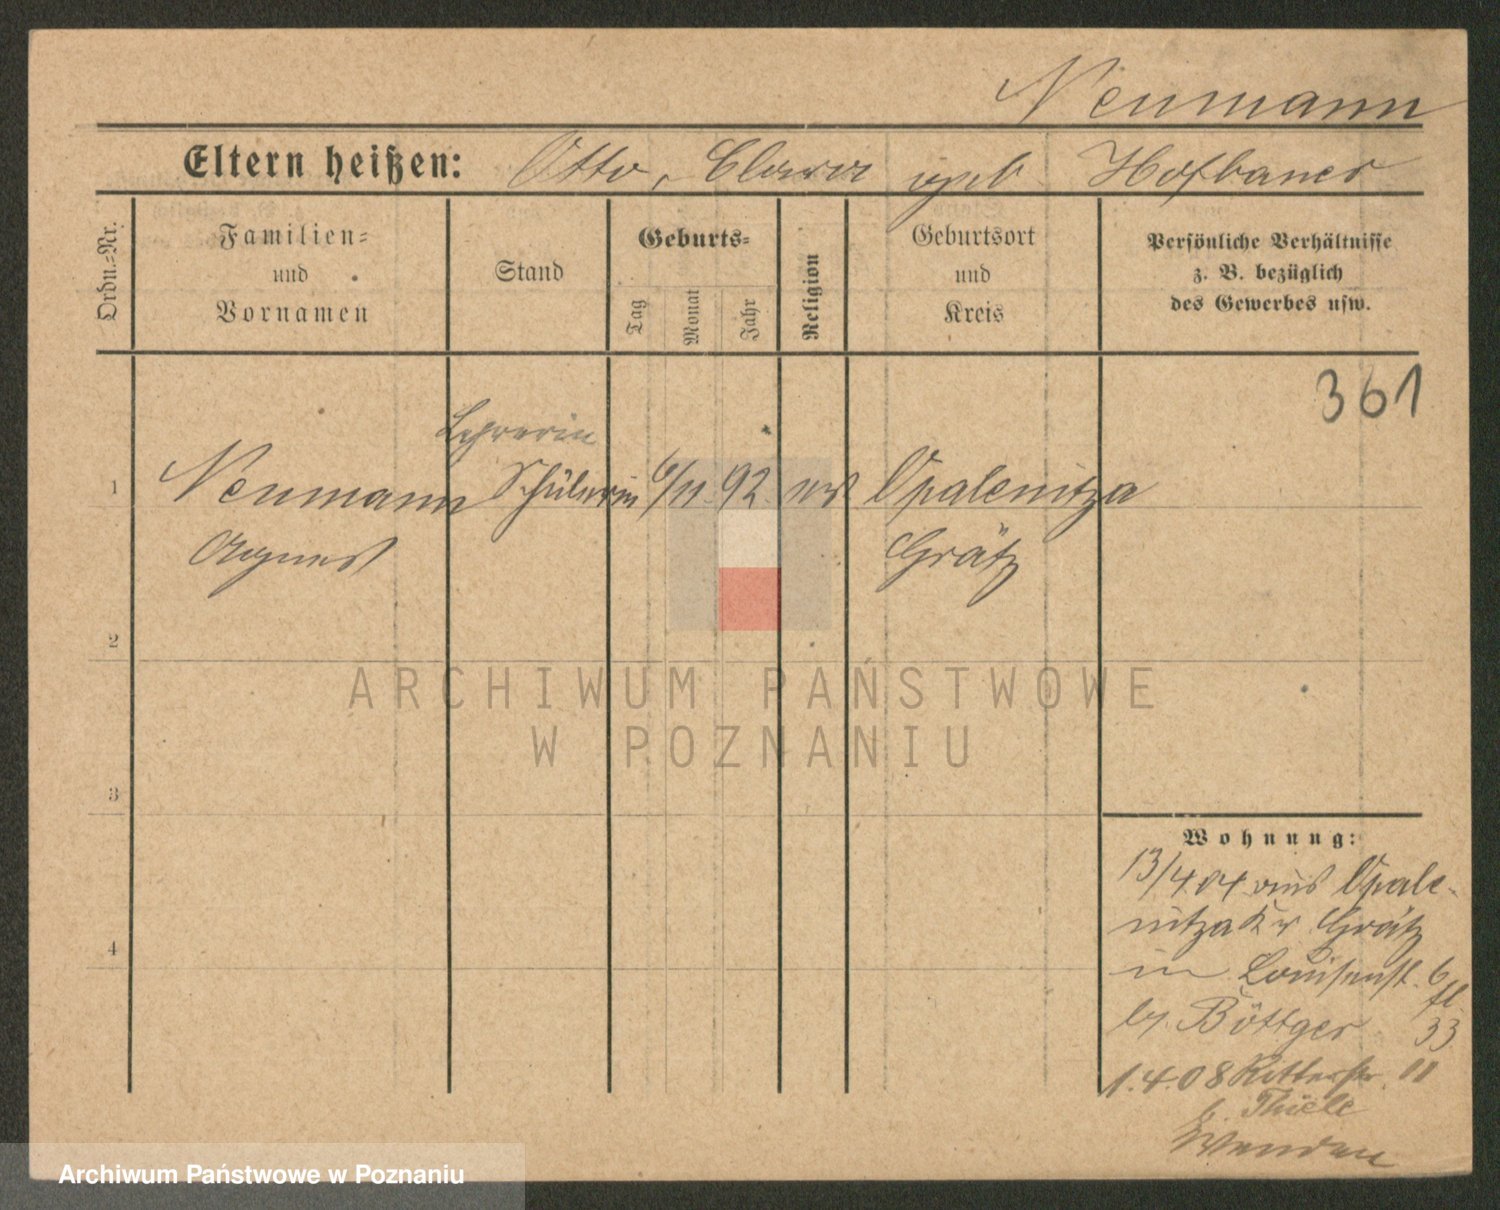 Neumann
Eltern heißen: Otto, Clara geb Hofbauer
Ordn.-Nr.
Familien-
und
Vornamen
Stand
Geburts-
Tag
Monat
Jahr
Religion
Geburtsort
und
Kreis
Persönliche Verhältnisse
z. B. bezüglich
des Gewerbes usw.
361
Lehrerin
1 Neumann Schülerin 6/11. 92. ev Opalenitza
Agnes Grätz
2
ARCHIWUM PAŃSTWOWE
W POZNANIU
3
Wohnung:
13/4 04 aus Opale-
nitza Kr Grätz
in Louisenst. 6
33
b. Böttger
1.4.08 Ritterstr. 11
b. Thiele
Archiwum Państwowe w Poznaniu
4